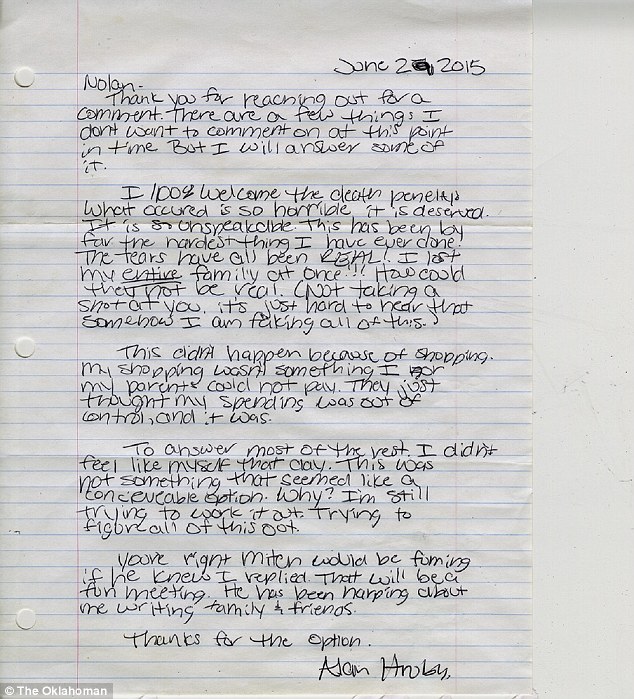 June 29 2015
Nolan-
Thank you for reaching out for a
comment. There are a few things I
dont want to comment on at this point
in time But I will answer some of
it.
I 100% welcome the death penelty.
What occured is so horrible it is deserved.
It is so unspeakable. This has been by
far the hardest thing I have ever done!
The tears have all been REAL!! I lost
my entire family at once!!! How could
they not be real. (Not taking a
shot at you, it's just hard to hear that
somehow I am faking all of this.)
This didn't happen because of shopping.
My shopping wasn't something I or
my parents could not pay. They just
thought my spending was out of
control, and it was.
To answer most of the rest. I didn't
feel like myself that day. This was
not something that seemed like a
conceiveable option. Why? I'm still
trying to work it out. Trying to
figure all of this oot.
You're right Mitch would be fuming
if he knew I replied. That will be a
fun meeting. He has been harping about
me writing family & friends.
Thanks for the option.
Alan Hruby
© The Oklahoman